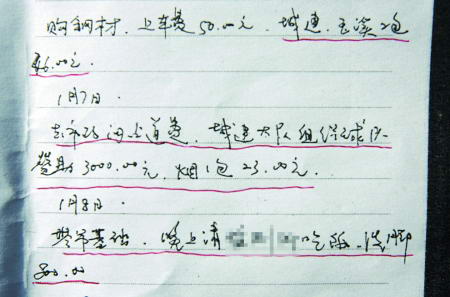 购钢材，上车费50.00元，城建，玉溪2包
46.00元。
1月7日．
去市政问出道费，城建大队组织球队
赞助3000.00元，烟1包23.00元．
1月8日．
整吊基础．晚上请 吃饭、洗脚
800.00